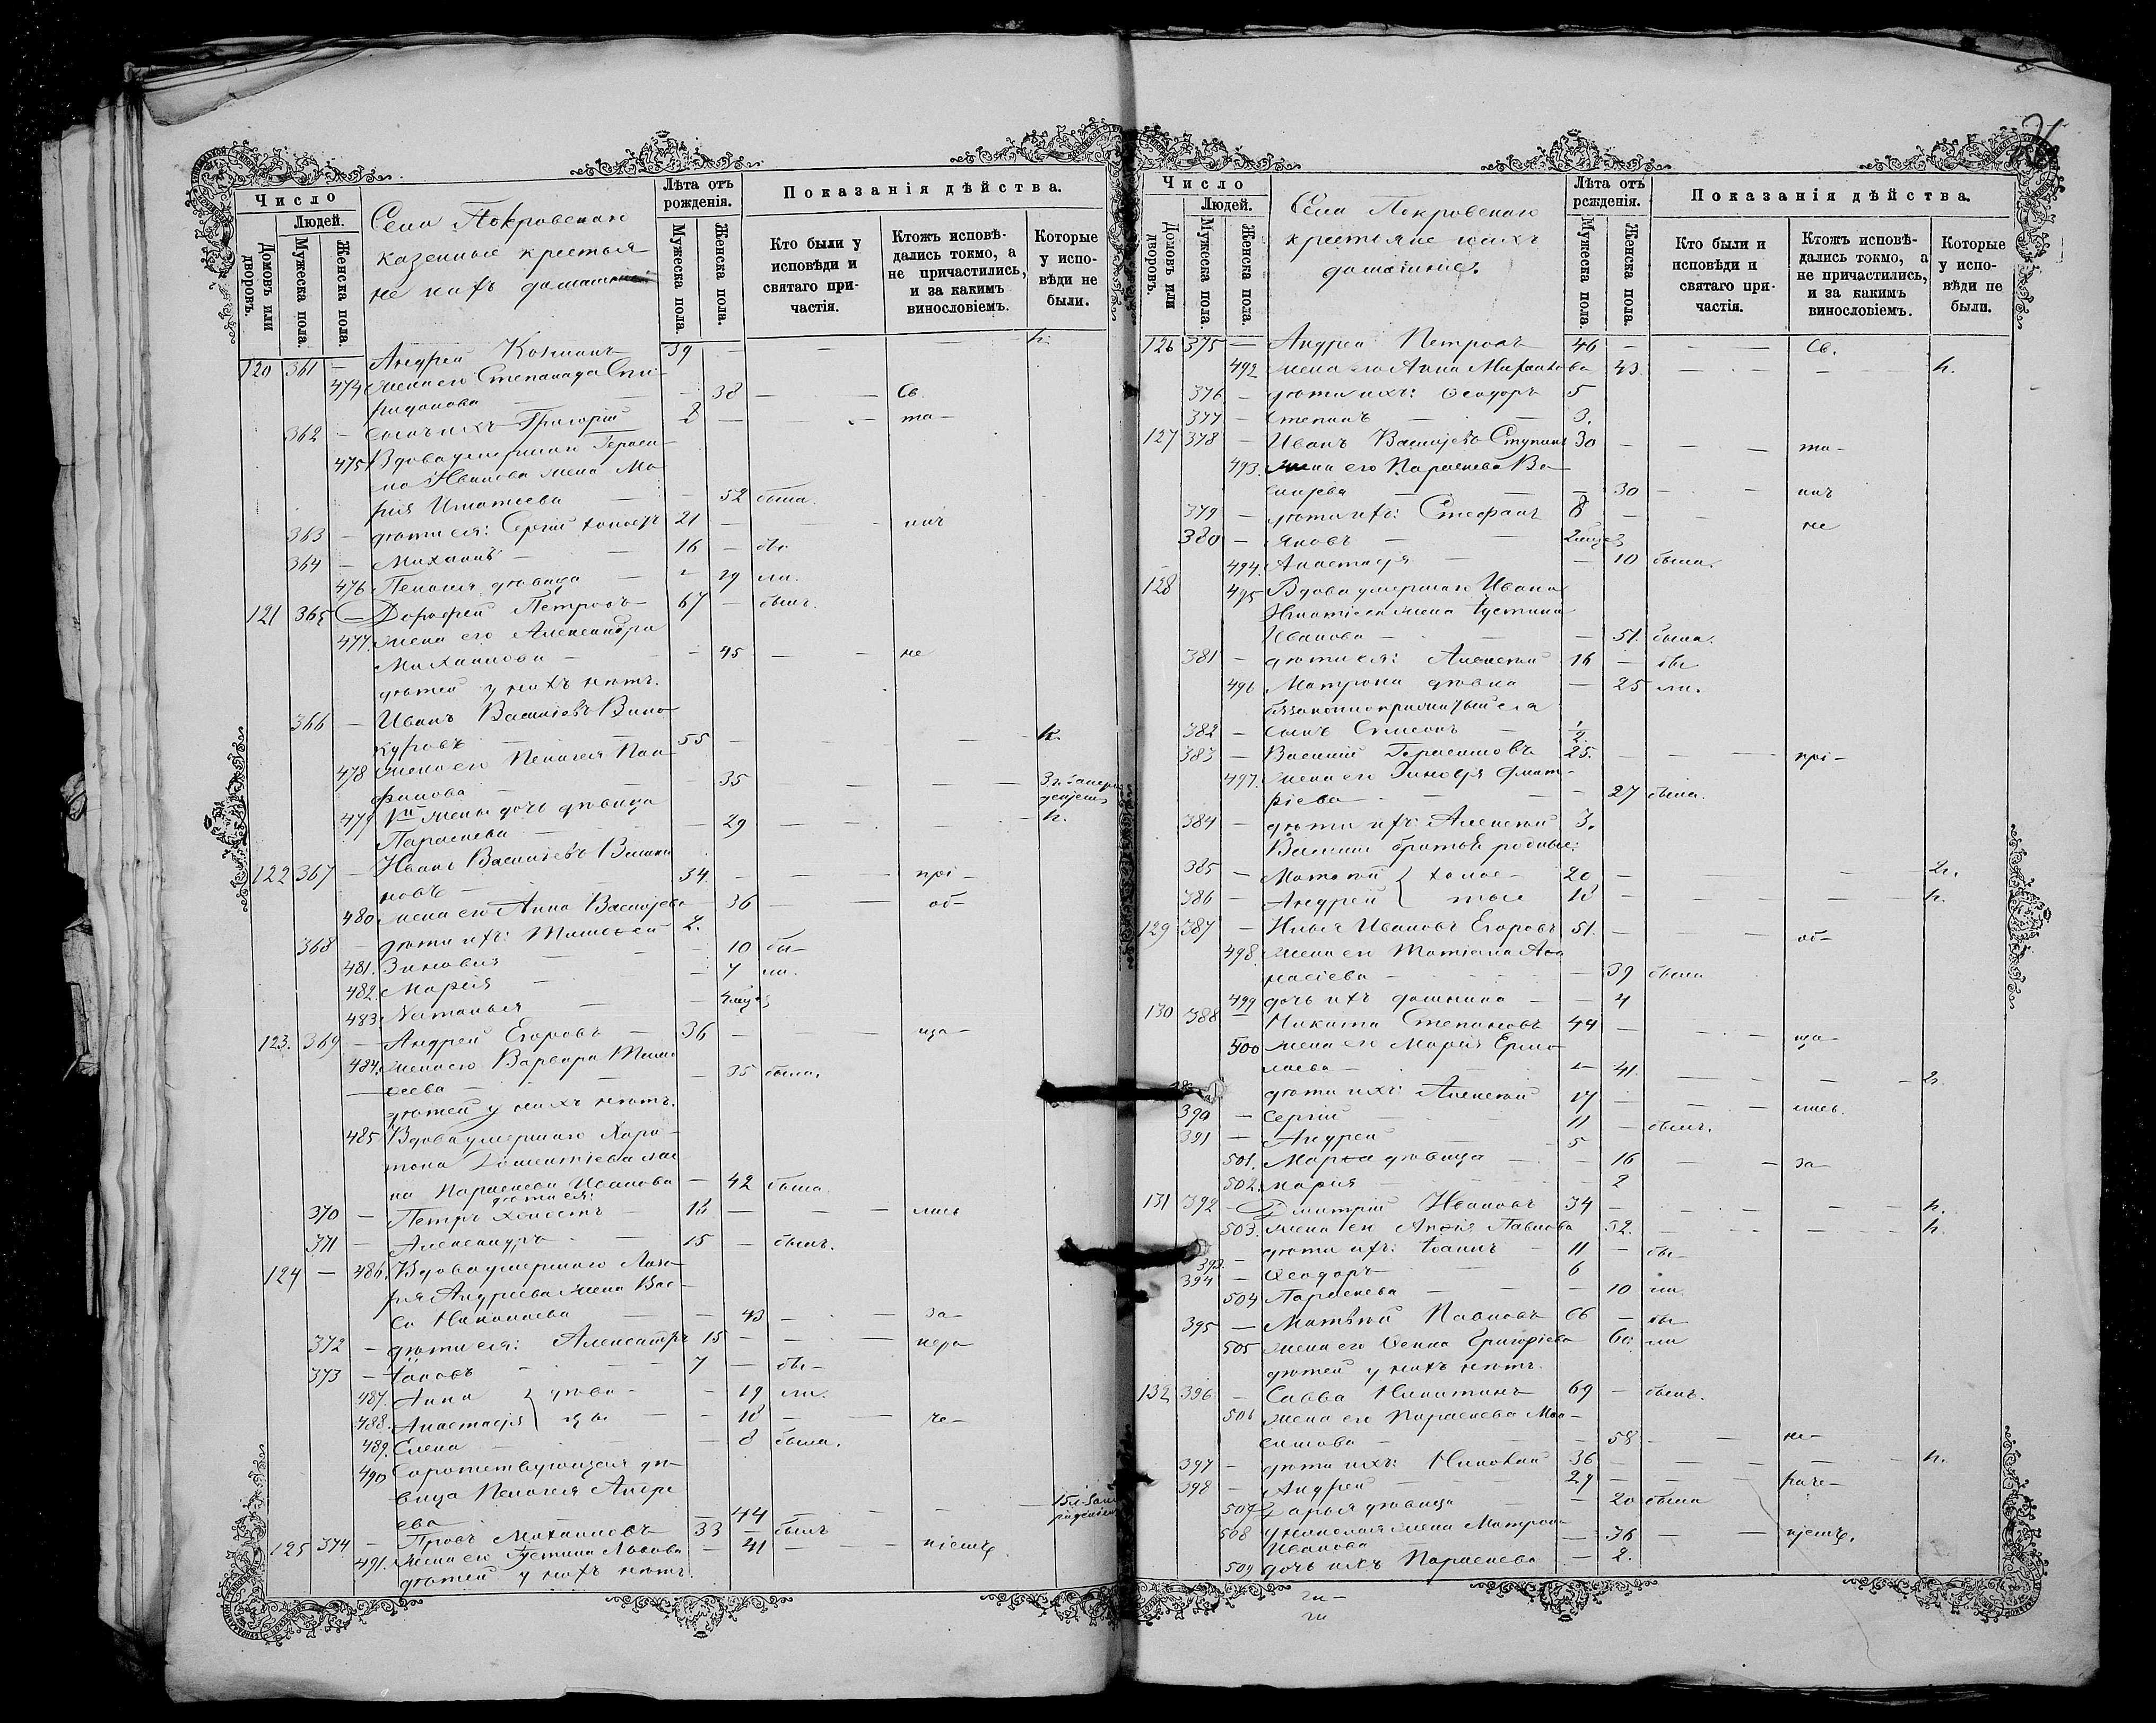 Число
Людей.
Домовъ или дворовъ.
Мужеска пола.
Женска пола.
Села Покровскаго
казенные крестья
не и ихъ домашніе
Лѣта отъ рожденія.
Мужеска пола.
Женска пола.
Показанія дѣйства.
Кто были у исповѣди и святаго при- частія.
Ктожъ исповѣ- дались токмо, а не причастились, и за какимъ винословіемъ.
Которые у испо- вѣди не были.
120 361 — Андрей 39 — — — н.
474 жена его Степанида Спи-
ридонова — — 38 — — Св.
362 — сынъ ихъ Григорій 8 — — та—
475 Вдова умершаго Гераси-
ма Иванова жена Ма-
рія Игнатьева — — 52 была.
363 — дѣти ея: Сергій холостъ 21 — — — инъ
364 — Михаилъ — — 16 — бы
476 Пелагія дѣвица — — 29 ли.
121 365 — Дорофей Петровъ — 67 — былъ.
477. жена его Александра
Михаилова — — — 45 — — не
дѣтей у нихъ нѣтъ.
366 — Иванъ Васильевъ Вино
куровъ — — 55 — — — н.
478 жена его Пелагея Пан
филова — — 35 — — —
479 1й жены дочь дѣвица
Параскева — — — 29 — — н.
122 367 — Иванъ Васильевъ
новъ — 34. — — — прі—
480 жена его Анна Васильева — 36 — — об—
368 — дѣти ихъ: Тимофей 2.
481. Зиновія — — — 10 бы—
482. Марія — — 7 ли.
483. Наталья — —
123. 369 — Андрей Егоровъ — 36 — — — ща—
484. жена его Варвара Тимо
феева — — 35 была.
дѣтей у нихъ нѣтъ.
485 Вдова умершаго Хари-
тона Дементьева же
на Параскева Иванова — 42 была.
дѣти ея:
370 — Петръ холостъ — 18 — — — лись
371 — Александръ — — 15 — былъ.
124 — 486. Вдова умершаго Лаза-
ря Андреева жена Вас-
са Николаева — — 43 — — за—
372 — дѣти ея: Александръ 15 — — — нера
373 — Іаковъ — — 7 — бы—
487. Анна } дѣви — — 19 ли.
488. Анастасія } цы — — 18 — — че—
489. Елена — — — 8 была.
490 Сиротствующая дѣ-
вица Пелагея Андре
ева — 44 — — —
125 374 — Провъ Михаиловъ — 33 — былъ
491. жена его Іустина Львова — 41 — — ніемъ
дѣтей у нихъ нѣтъ.
Число
Людей.
Домовъ или дворовъ.
Мужеска пола.
Женска пола.
Села Покровскаго
крестьяне и ихъ
домашніе.
Лѣта отъ рожденія.
Мужеска пола.
Женска пола.
Показанія дѣйства.
Кто были и исповѣди и святаго при- частія.
Ктожъ исповѣ- дались токмо, а не причастились, и за какимъ винословіемъ.
Которые у испо- вѣди не были.
126 375 — Андрей Петровъ 46 — — — Св.
492 жена его Анна Михаилова 43. — — — н.
376 — дѣти ихъ: Ѳеодоръ 5
377 — Степанъ — — 3.
127 378 — Иванъ Васильевъ Ступинъ 30 — — — та—
493. жена его Параскева Ва-
сильева — — — 30 — — инъ
379 — дѣти ихъ: Стефанъ 8 — — не
380 — Яковъ — —
494. Анастасія — — 10 была.
128 495 Вдова умершаго Ивана
Игнатіева жена Іустина
Иванова — — — 51. была.
381 — дѣти ея: Алексѣй 16 — бы
496 Матрона дѣвка — 25 ли.
382 — сынъ Симеонъ —
383 — Василій Герасимовъ 25. — — — прі—
497. жена его Зиновія Дмит-
ріева — — — 27 была.
384 — дѣти ихъ: Алексѣй 3.
Василія братья родные:
385 — Матвѣй { холос— 20 — — —
386 — Андрей { тые 18 — — — н.
129 387 — Илья Ивановъ Егоровъ 51. — — — об—
498. жена его Татіана Аѳа
насіева — — — 39 была
499 дочь ихъ Домника — — 4
130 388 — Никита Степановъ 44 — — — ща—
500 жена его Марія Ермо
лаева — — 41. — — —
дѣти ихъ: Алексѣй 17 — — — лись.
390 — Сергій — — 11 — былъ.
391 — Андрей — — 5
501. Марѳа дѣвица — — 16 — — за—
502. Марія — — 2
131 392 — Дмитрій Ивановъ 34 — — — н.
503. жена его Анна Павлова 32. — — — н.
393. — дѣти ихъ: Іоаннъ — 11 — бы—
394 — Ѳеодоръ — — 6
504 Параскева — — — 10 ли.
395 — Матѳей Павловъ 66 — бы
505 жена его Ксенія Григоріева 60. ли
дѣтей у нихъ нѣтъ.
132 396 — Савва Никитинъ 69 — былъ.
506 жена его Параскева Мак-
симова — — — 58 — — не—
397 — дѣти ихъ: Николай 36 — — — н.
398 — Андрей — — 29 — — раче—
507 Дарья дѣвица — — 20 была
508 у Николая жена Матрона
Иванова — — 36 — — ніемъ.
509 дочь ихъ Параскева — 2.